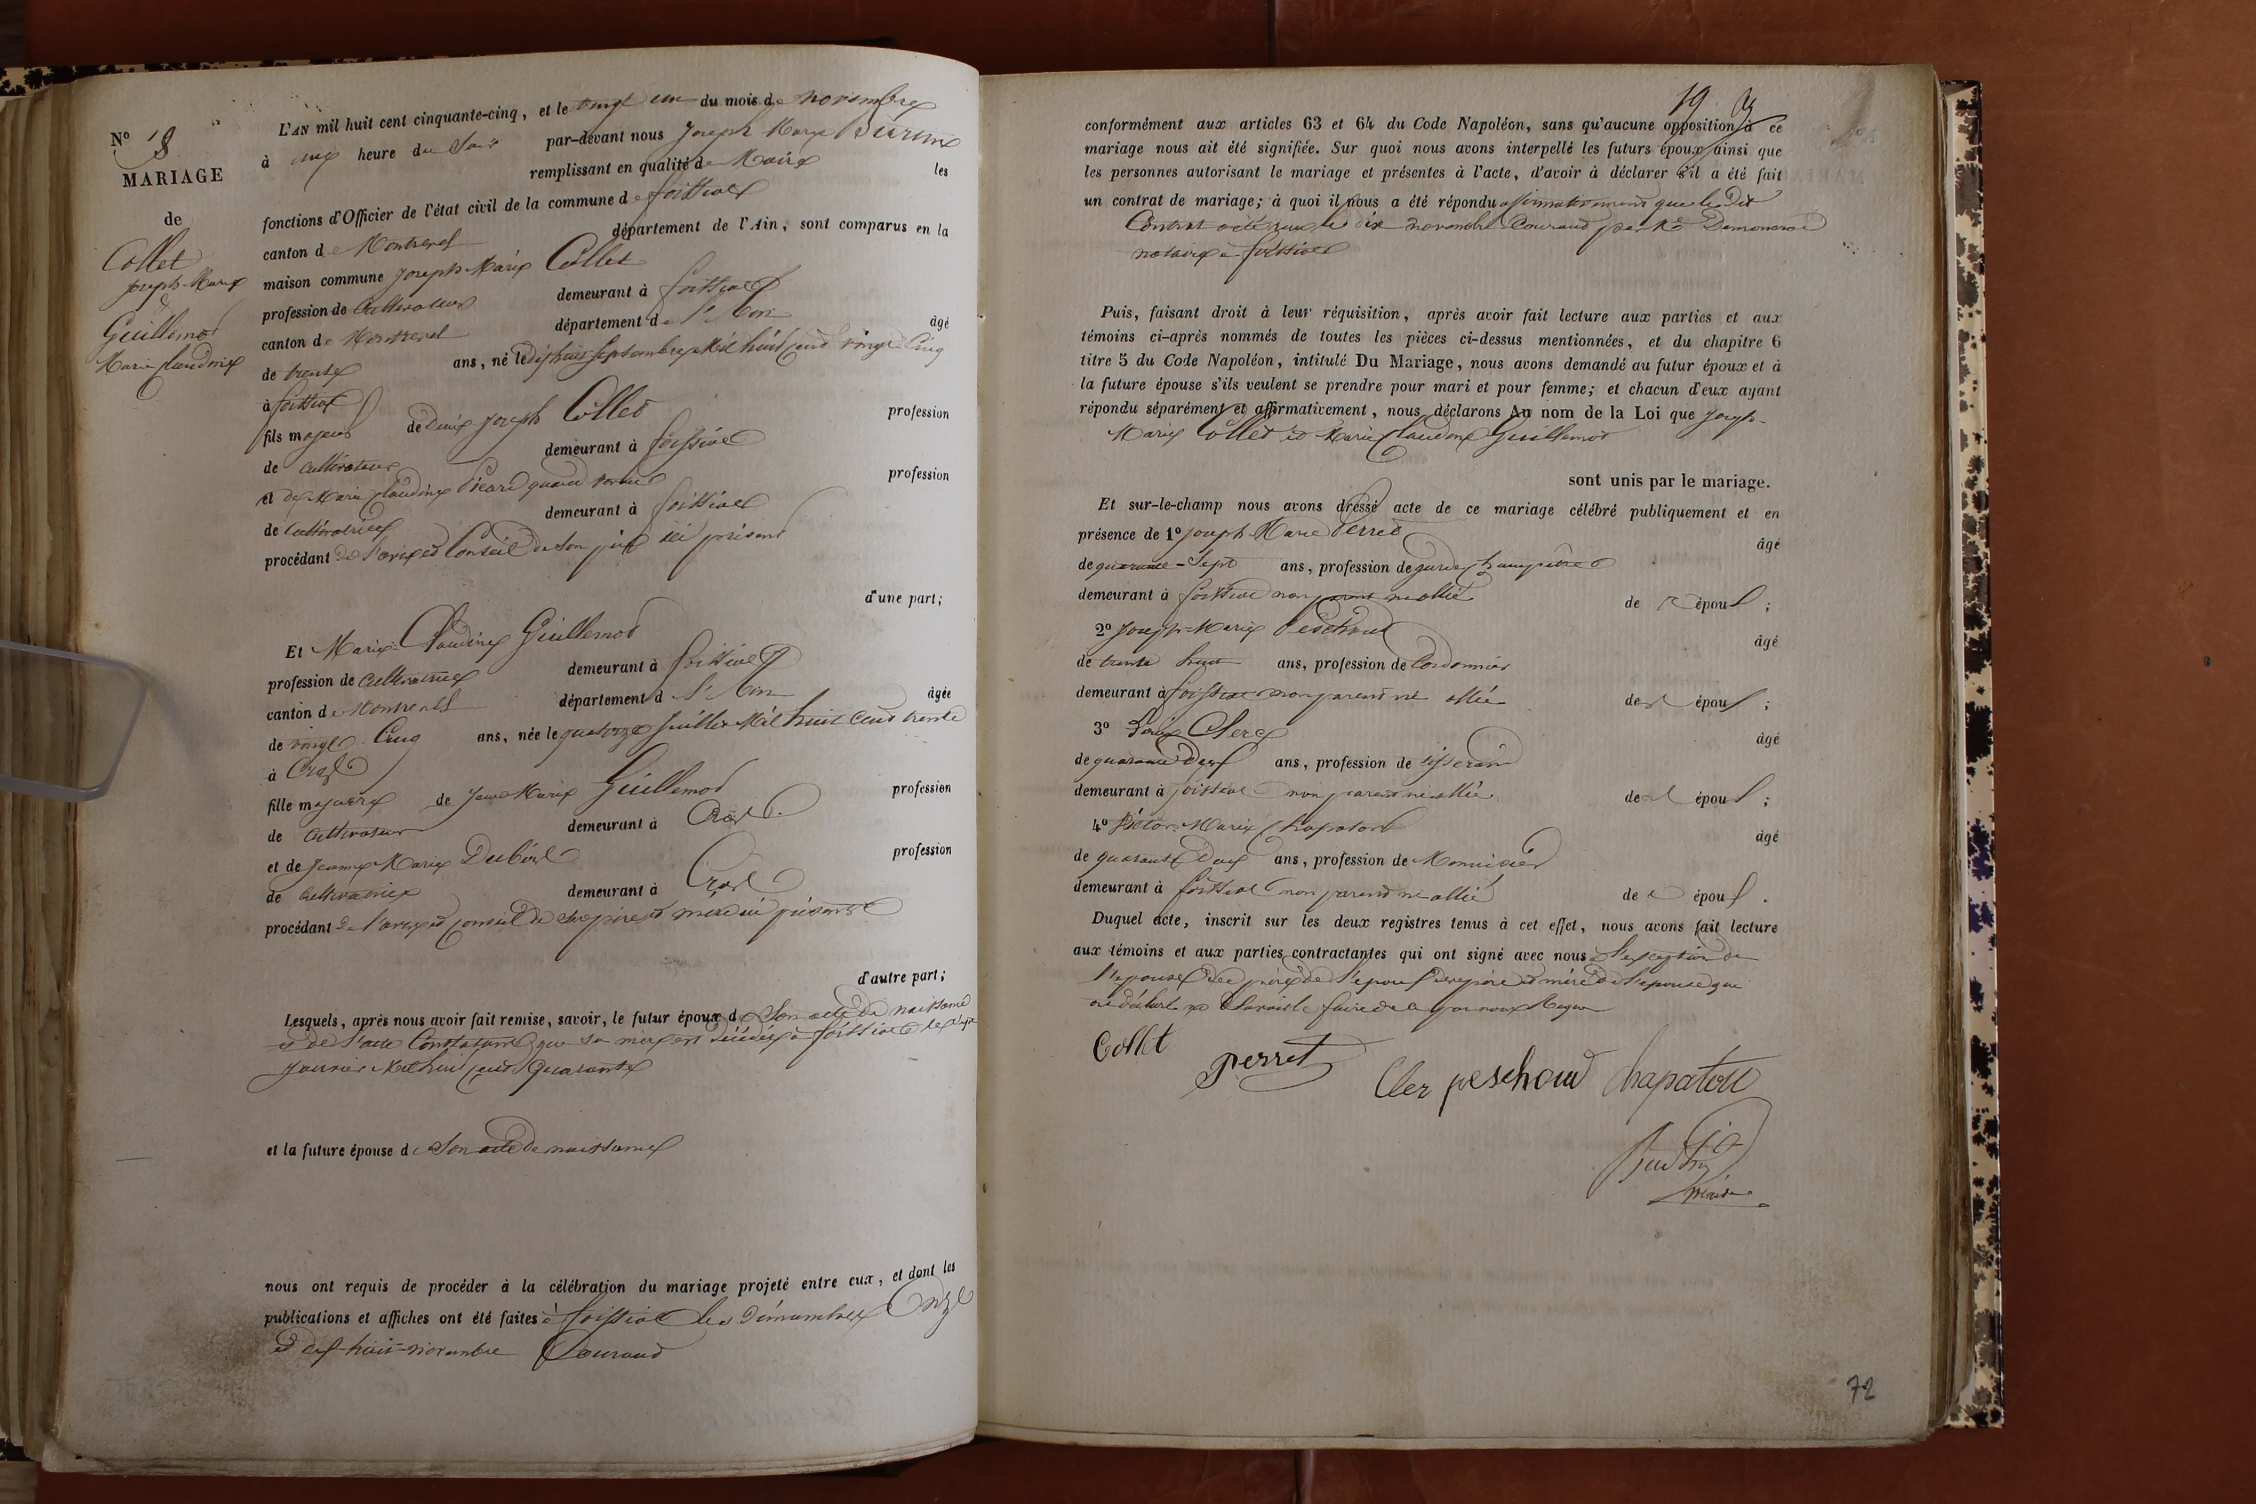 N° 18
MARIAGE
de
Collet
Joseph-Marie
&
Guillemot
Marie Claudine
L'AN mil huit cent cinquante-cinq, et le vingt un du mois de novembre
à une heure du Soir par-devant nous Joseph Marie
remplissant en qualité de Maire les
fonctions d'Officier de l'état civil de la commune de foissiat
canton de Montrevel département de l'Ain, sont comparus en la
maison commune Joseph-Marie Collet
profession de Cultivateur demeurant à foissiat
canton de Montrevel département de l'Ain âgé
de trente ans, né le dix huit Septembre Mil huit Cent vingt Cinq
à foissiat
fils majeur de Joseph Collet profession
de cultivateur demeurant à foissiat
et de Marie Claudine quand vivait profession
de Cultivatrice demeurant à foissiat
procédant de l'avis et Conseil de son père ici présent
d'une part;
Et Marie-Claudine Guillemot
profession de cultivatrice demeurant à foissiat
canton de Montrevel département de l'Ain âgée
de vingt-Cinq ans, née le quatorze Juillet Mil huit Cent trente
à Cras
fille majeure de Jean Marie Guillemot profession
de cultivateur demeurant à Cras
et de Jeanne Marie profession
de cultivatrice demeurant à Cras
procédant de l'avis et conseil de ses père et mère ici présents
d'autre part;
Lesquels, après nous avoir fait remise, savoir, le futur époux de Son acte de naissance
et de l'acte Constatant que sa mère est décédée à foissiat le
Janvier Mil huit Cent Quarante
et la future épouse de Son acte de naissance
nous ont requis de procéder à la célébration du mariage projeté entre eux, et dont les
publications et affiches ont été faites à foissiat les dimanches Onze
et dix-huit novembre Courant
19
conformément aux articles 63 et 64 du Code Napoléon, sans qu'aucune opposition à ce
mariage nous ait été signifiée. Sur quoi nous avons interpellé les futurs époux ainsi que
les personnes autorisant le mariage et présentes à l'acte, d'avoir à déclarer s'il a été fait
un contrat de mariage; à quoi il nous a été répondu affirmativement que le dit
Contrat a été reçu le dix novembre Courant par Me
notaire à foissiat
Puis, faisant droit à leur réquisition, après avoir fait lecture aux parties et aux
témoins ci-après nommés de toutes les pièces ci-dessus mentionnées, et du chapitre 6
titre 5 du Code Napoléon, intitulé Du Mariage, nous avons demandé au futur époux et à
la future épouse s'ils veulent se prendre pour mari et pour femme; et chacun d'eux ayant
répondu séparément et affirmativement, nous déclarons Au nom de la Loi que Joseph-
Marie Collet et Marie Claudine Guillemot
sont unis par le mariage.
Et sur-le-champ nous avons dressé acte de ce mariage célébré publiquement et en
présence de 1° Joseph-Marie Perret âgé
de quarante-Sept ans, profession de garde Champêtre
demeurant à foissiat non parent ni allié de époux;
2° Joseph-Marie Peschoud âgé
de trente huit ans, profession de Cordonnier
demeurant à foissiat non parent ni allié des époux;
3° Clerc âgé
de quarante deux ans, profession de tisserand
demeurant à foissiat non parent ni allié des époux;
4° Victor-Marie Chapatou âgé
de quarante Deux ans, profession de Menuisier
demeurant à foissiat non parent ni allié des époux.
Duquel acte, inscrit sur les deux registres tenus à cet effet, nous avons fait lecture
aux témoins et aux parties contractantes qui ont signé avec nous à l'exception de
l'épouse du père de l'époux des père et mère de l'épouse qui
ont déclaré ne Savoir le faire de ce par nous Requis
Collet
perret
Cler peschoud Chapatou
Maire
72